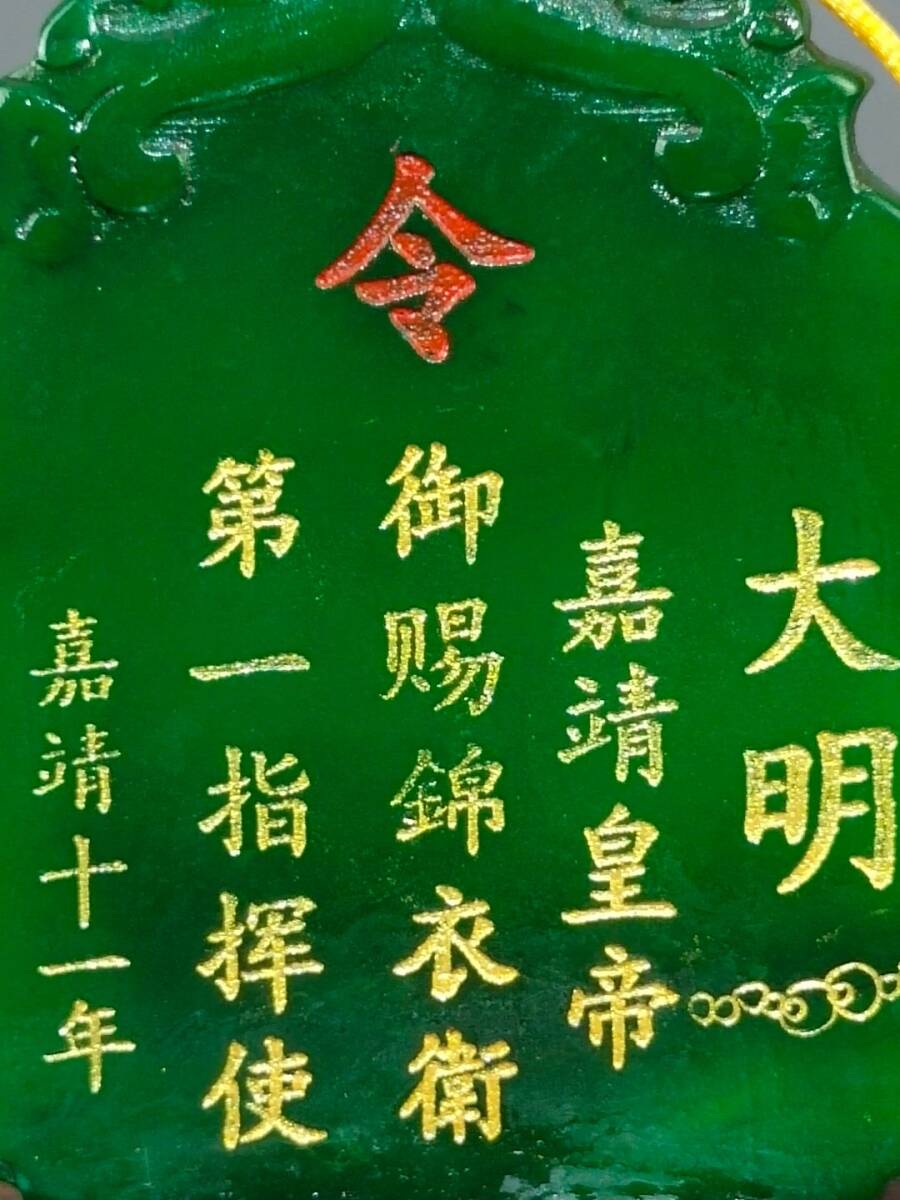 令
大明
嘉靖皇帝
御赐錦衣衛
第一指挥使
嘉靖十一年